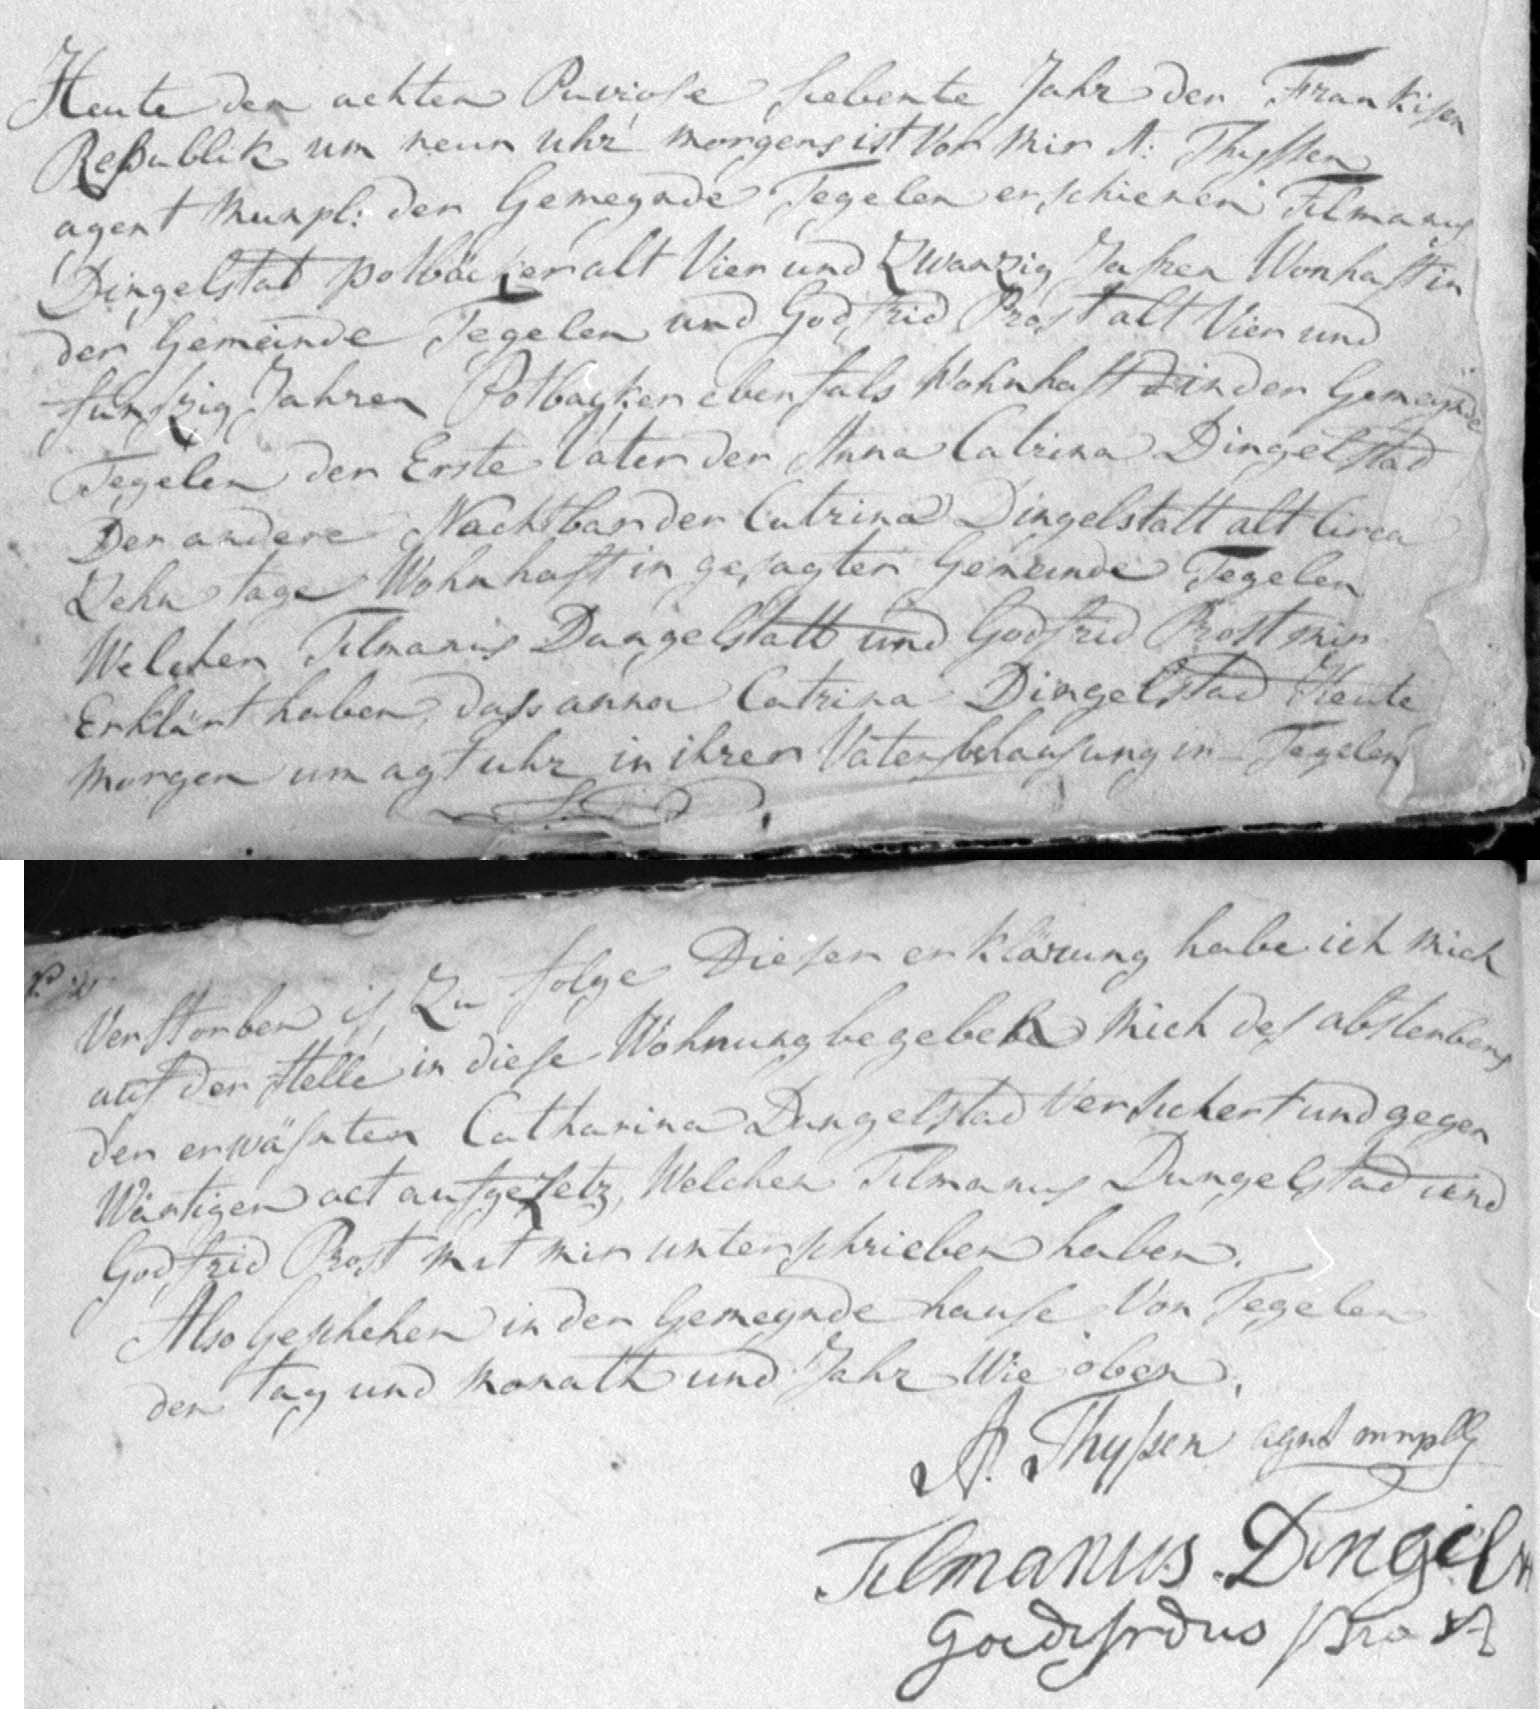 Heute den achten Puviose siebente Jahr der Frankisen
Republik um neun uhr morgens ist Vor Mir A: Thyssen
agent Munpl: der Gemeynde Tegelen erschienen Tilmanus
Dingelstat potbäcker alt Vier und Zwanzig Jahren Wonhaft in
der Gemeinde Tegelen und Godfrid Prost alt Vier und
funfzig Jahren Potbacker ebenfals Wohnhaft in der Gemeynde
Tegelen der Erste Vater der Anna Catrina Dingelstad
Der andere Nachtbar der Catrina Dingelstatt alt Circa
Zehn tage Wohnhaft in gesagter Gemeinde Tegelen
Welchen Tilmanus Dungelstatt und Godfrid Prost mir
Erklärt haben, dass anna Catrina Dingelstad Heute
morgen um agt uhr in ihrer Vatersbehausung in Tegelen
Verstorben is, Zu folge Dieser erklärung habe ich mich
auf der stelle in diese Wohnung begeben Mich des absterbens
der erwähnten Catharina Dungelstad Versichert und gegen
Wärtigen act aufgesetz, Welchen Tilmanus Dungelstad und
Godfrid Prost mit mir unterschrieben haben.
Also Geschehen in der Gemeynde hause Von Tegelen
den tag und monath und Jahr Wie oben.
A. Thyssen agnt mnplg
Tilmanus Dingels
Godefrdus Prost